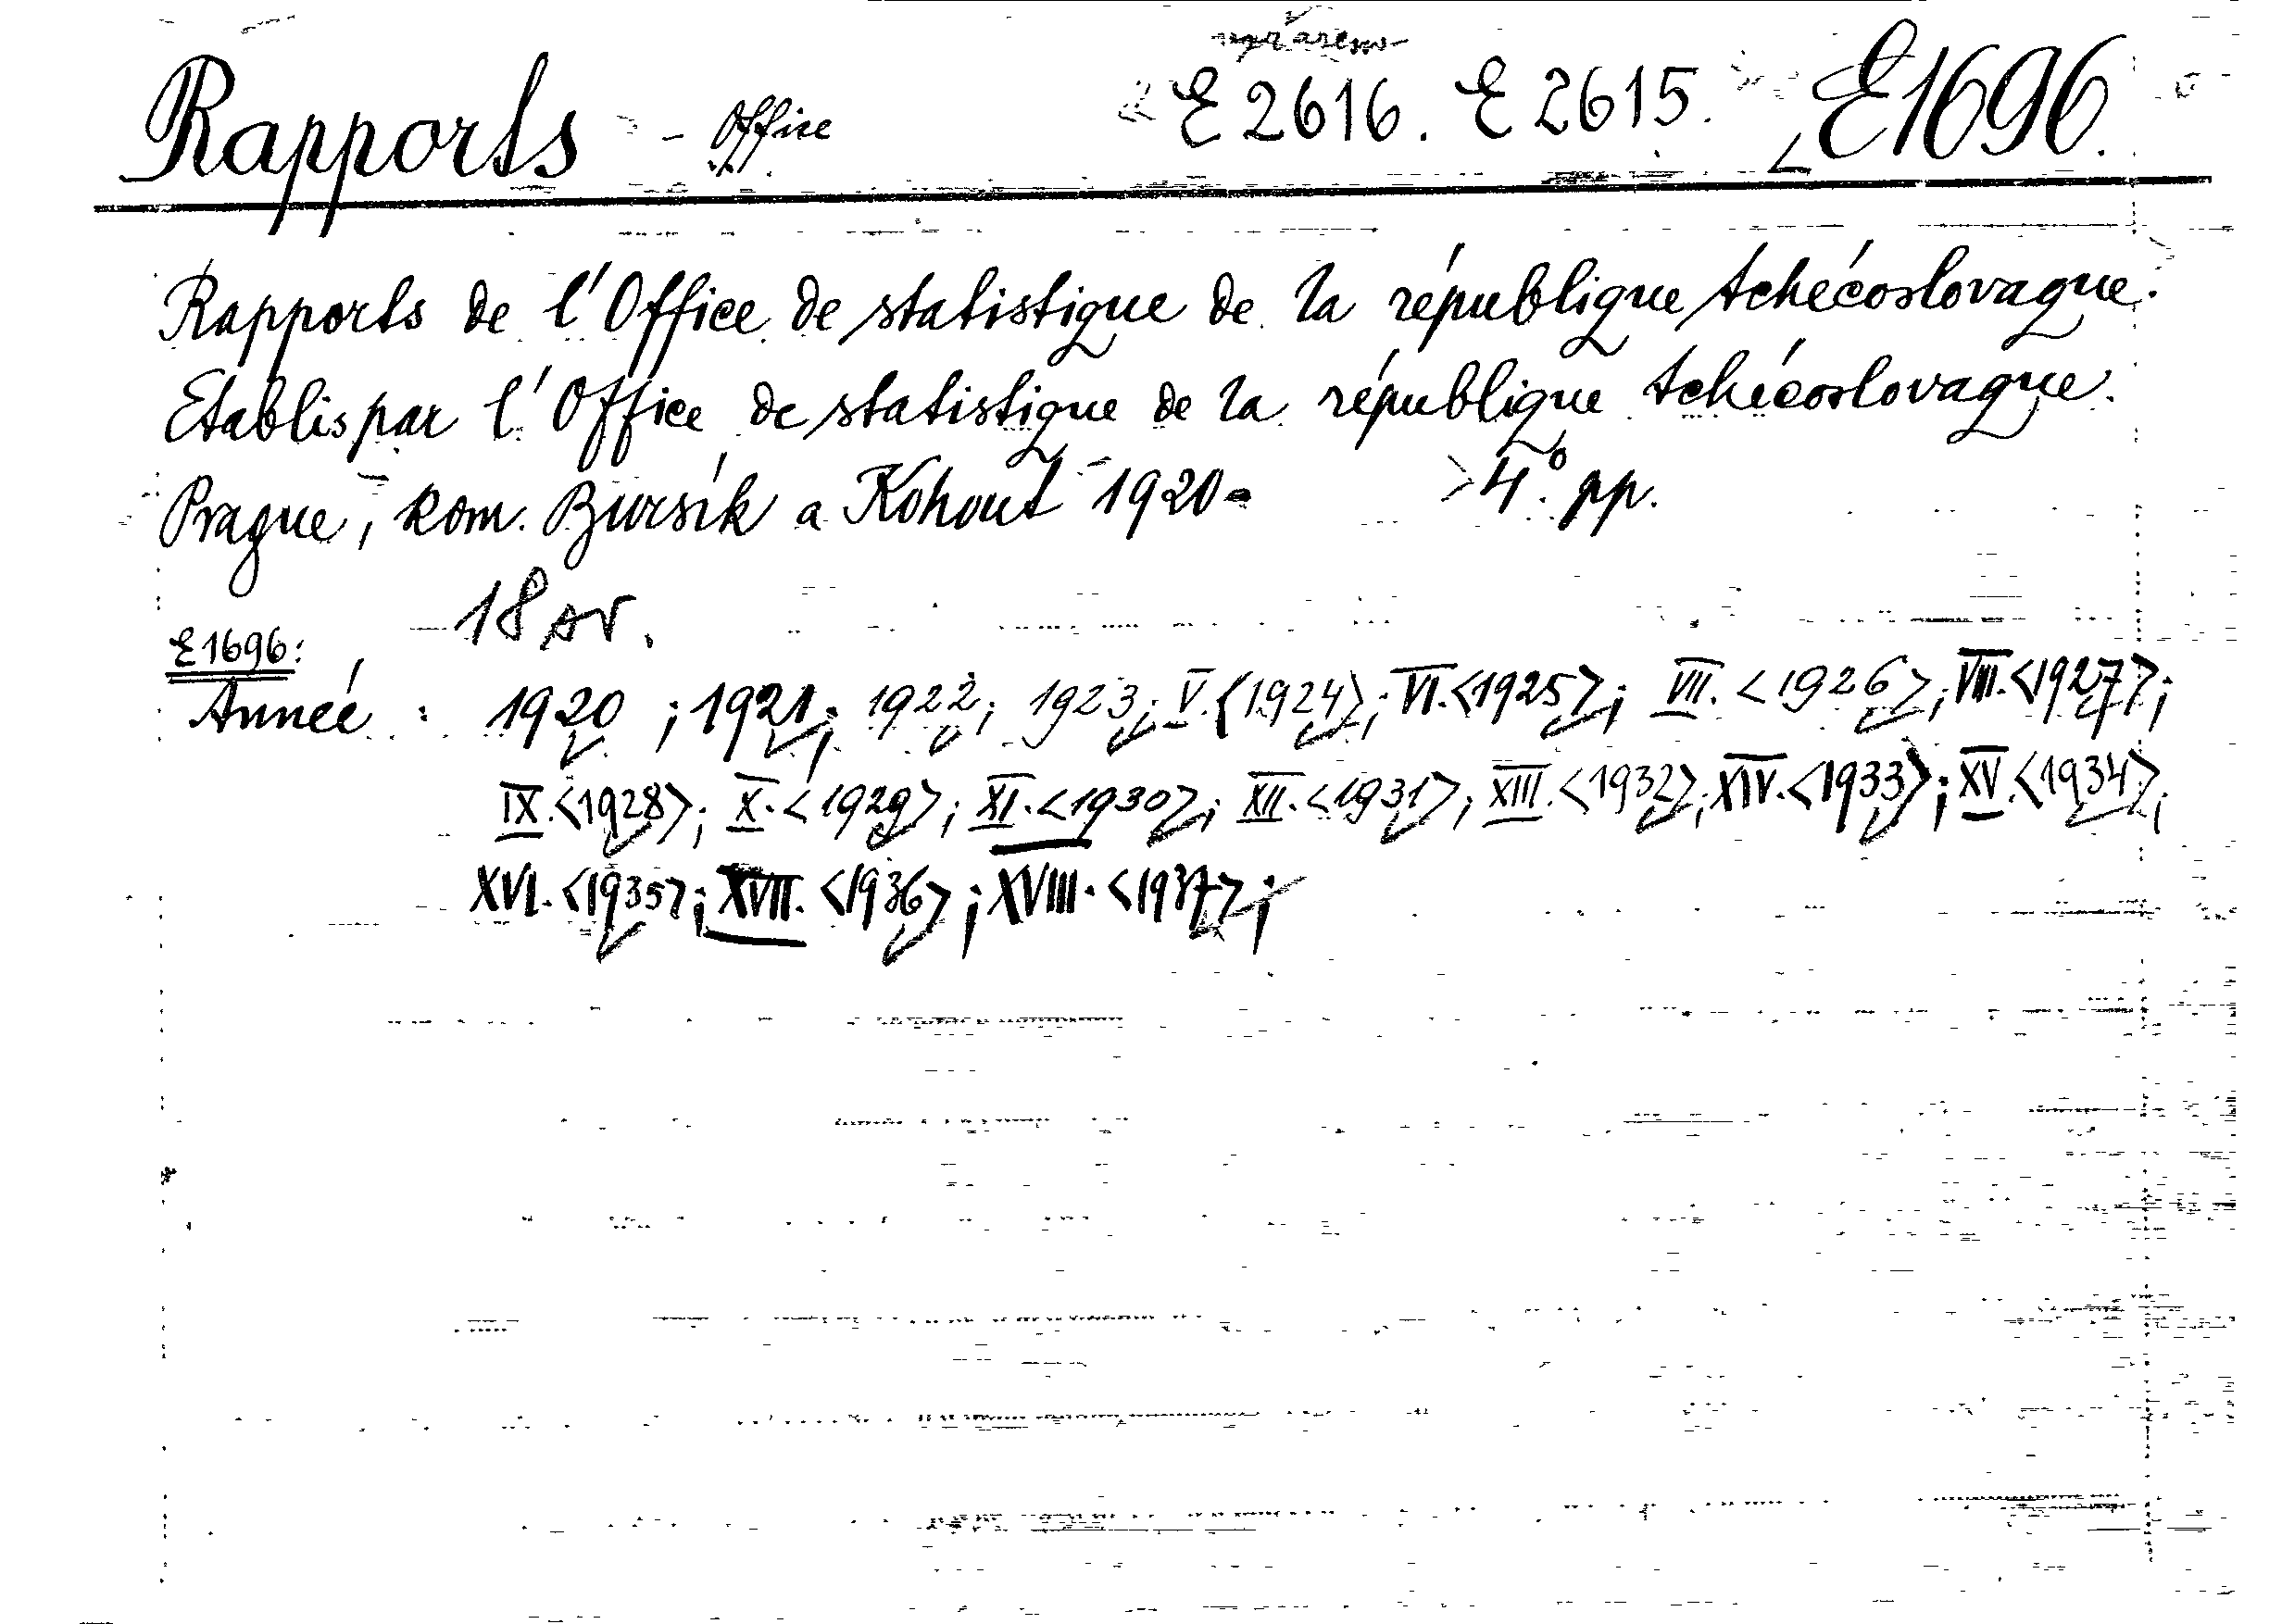 Rapports - Office E 2616. E 2615. E1696.
Rapports de l'Office de statistique de la république tchécoslovaque.
Etablis par l'Office de statistique de la république tchécoslovaque.
Prague, kom. Bursík a Kohout 1920- 4° pp.
18 sv.
E1696:
Année : 1920 ; 1921; 1922; 1923; V.<1924>; VI.<1925>; VII.<1926>; VIII.<1927>;
IX.<1928>; X.<1929>; XI.<1930>; XII.<1931>; XIII.<1932>; XIV.<1933>; XV.<1934>;
XVI.<1935>; XVII.<1936>; XVIII.<1937>;